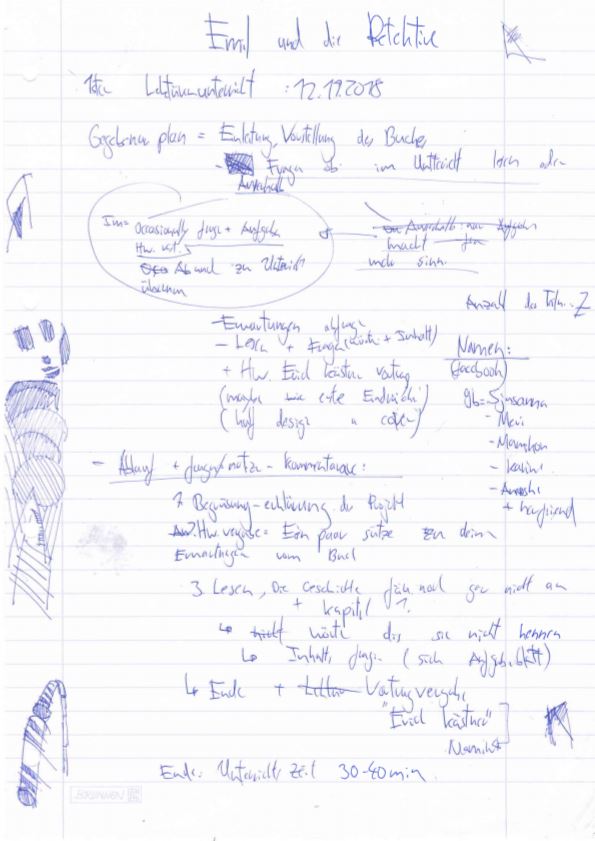 Emil und die Detektive
1ter Lektürenunterricht : 12.11.2018
Gegebener plan = Einleitung, Vorstellung des Buches
- Fragen ob im Unterricht lesen oder
Ausserhalb
Im = Occasionally frage + Aufgabe
Hw. vst.
Ab und zu Unterricht
übernen
macht
mehr sinn.
Anzahl der Teiln.: Z
- Erwartungen abfrage
- Lesen + Fragen ( + Inhalt)
+ Hw. Erich kästner vortrag
(maybe erte Eindrücke)
(half design a cover)
Namen:
(facebook)
- Meri
- Mamikon
- Karine
- Anushi
+ boyfriend
- Ablauf + - Kommentare:
1 Begrüssung - erklärung der Projekt
Hw. vergabe = Ein paar sätze zu deine
Erwartungen vom Buch
3. Lesen, Die Geschichte fän noch gar nicht an
+ kapitel 1.
↳ wörte die sie nicht kennen
↳ Inhalts frage (sieh Aufgabeblatt)
↳ Ende + Vortrag vergabe
"Erich kästner"
Ende: Unterrichts Zeit 30-40min.
BRUNNEN